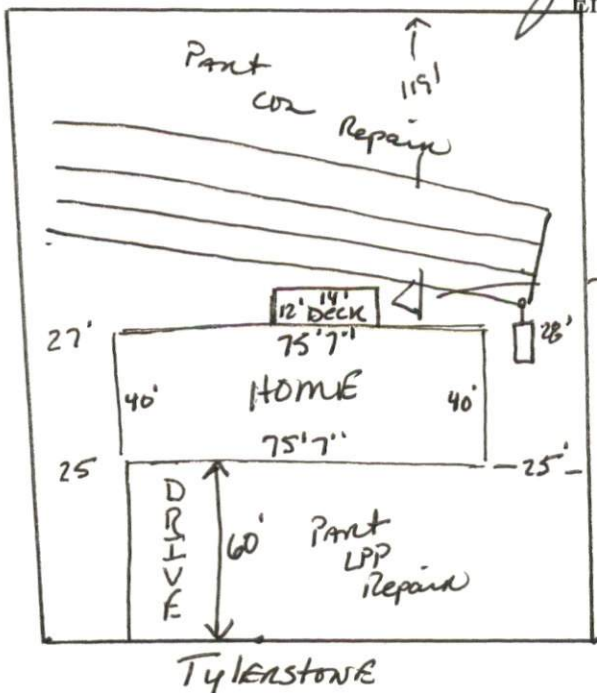 Part
119'
Repair
12' 14'
DECK
27'
28'
75'7"
40'
HOME
40'
75'7"
25
25'
DRIVE
60'
Part
LPP
Repair
Tylerstone